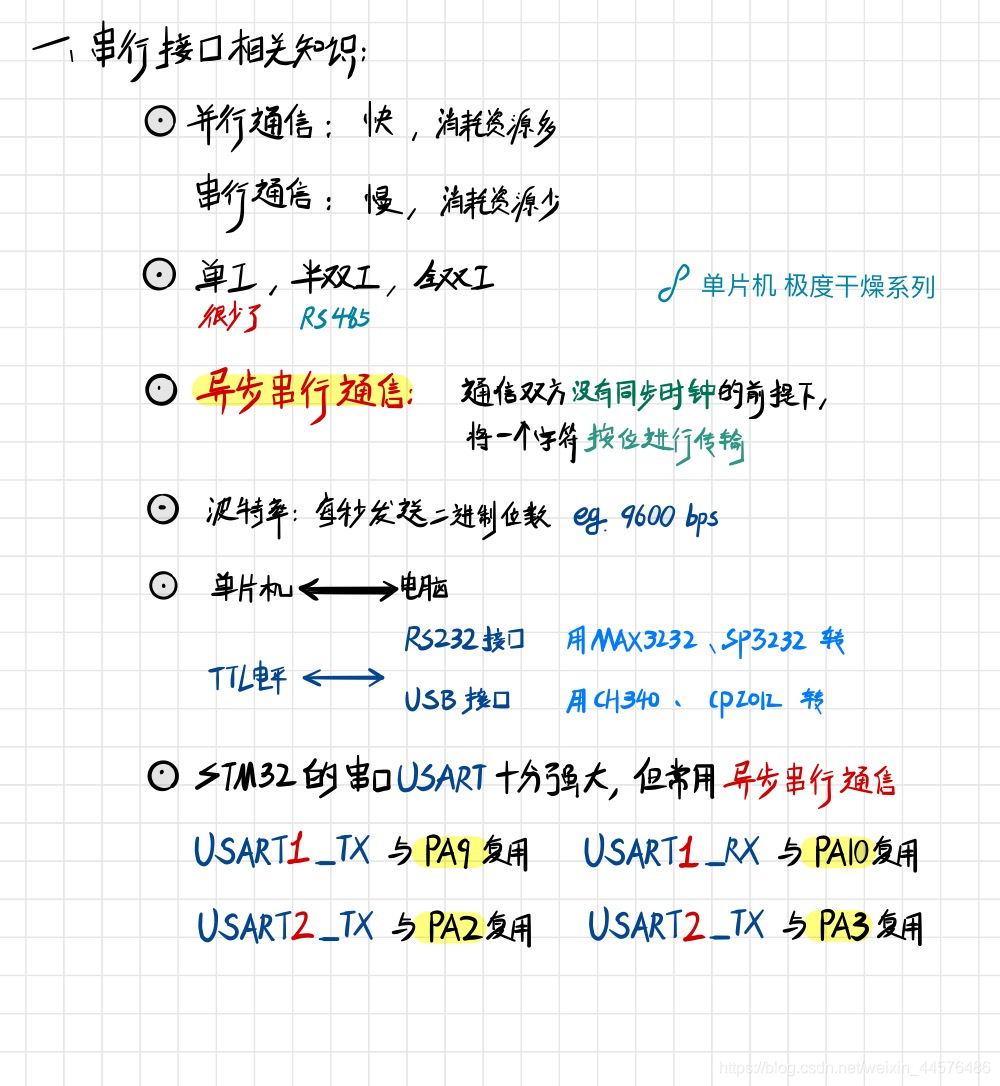 一、串行接口相关知识:
⊙ 并行通信: 快, 消耗资源多
串行通信: 慢, 消耗资源少
⊙ 单工, 半双工, 全双工
单片机 极度干燥系列
很少了 RS485
⊙ 异步串行通信: 通信双方没有同步时钟的前提下,
将一个字符按位进行传输
⊙ 波特率: 每秒发送二进制位数 eg. 9600 bps
⊙ 单片机 ⟷ 电脑
RS232接口 用MAX3232、SP3232 转
TTL电平 ⟷
USB 接口 用CH340、CP2012 转
⊙ STM32的串口USART十分强大, 但常用异步串行通信
USART1_TX 与PA9复用 USART1_RX 与PA10复用
USART2_TX 与PA2复用 USART2_TX 与PA3复用
https://blog.csdn.net/weixin_44576486